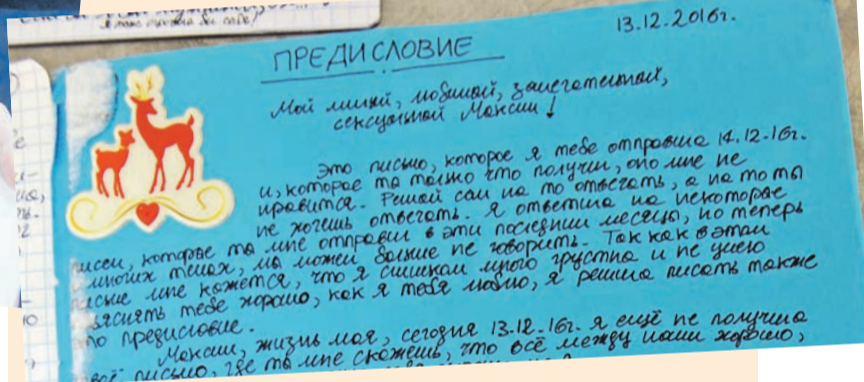 бы себе?
13.12.2016г.
ПРЕДИСЛОВИЕ
Мой милый, любимый, замечательный,
сексуальный Максим!
Это письмо, которое я тебе отправила 14.12.16г.
и, которое ты только что получил, оно мне не
нравится. Решай сам на то отвечать, а на то ты
не хочешь отвечать. Я ответила на некоторые
письма, которые ты мне отправил в эти последнии месецы, но теперь
многих темах, мы можем больше не говорить. Так как в этом
письме мне кажется, что я слишком много грустна и не умею
яснять тебе хорошо, как я тебя люблю, я решила писать также
это предисловие.
Максим, жизнь моя, сегодня 13.12.16г. я ещё не получила
твоё письмо, где ты мне скажешь, что всё между нами хорошо,